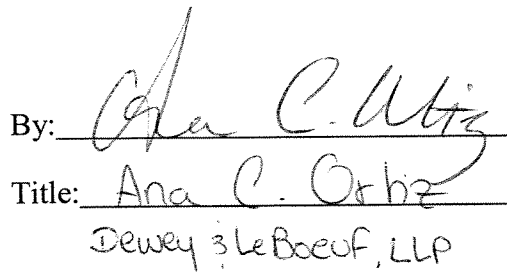 By: Ana C. Ortiz
Title: Ana C. Ortiz
Dewey & LeBoeuf, LLP